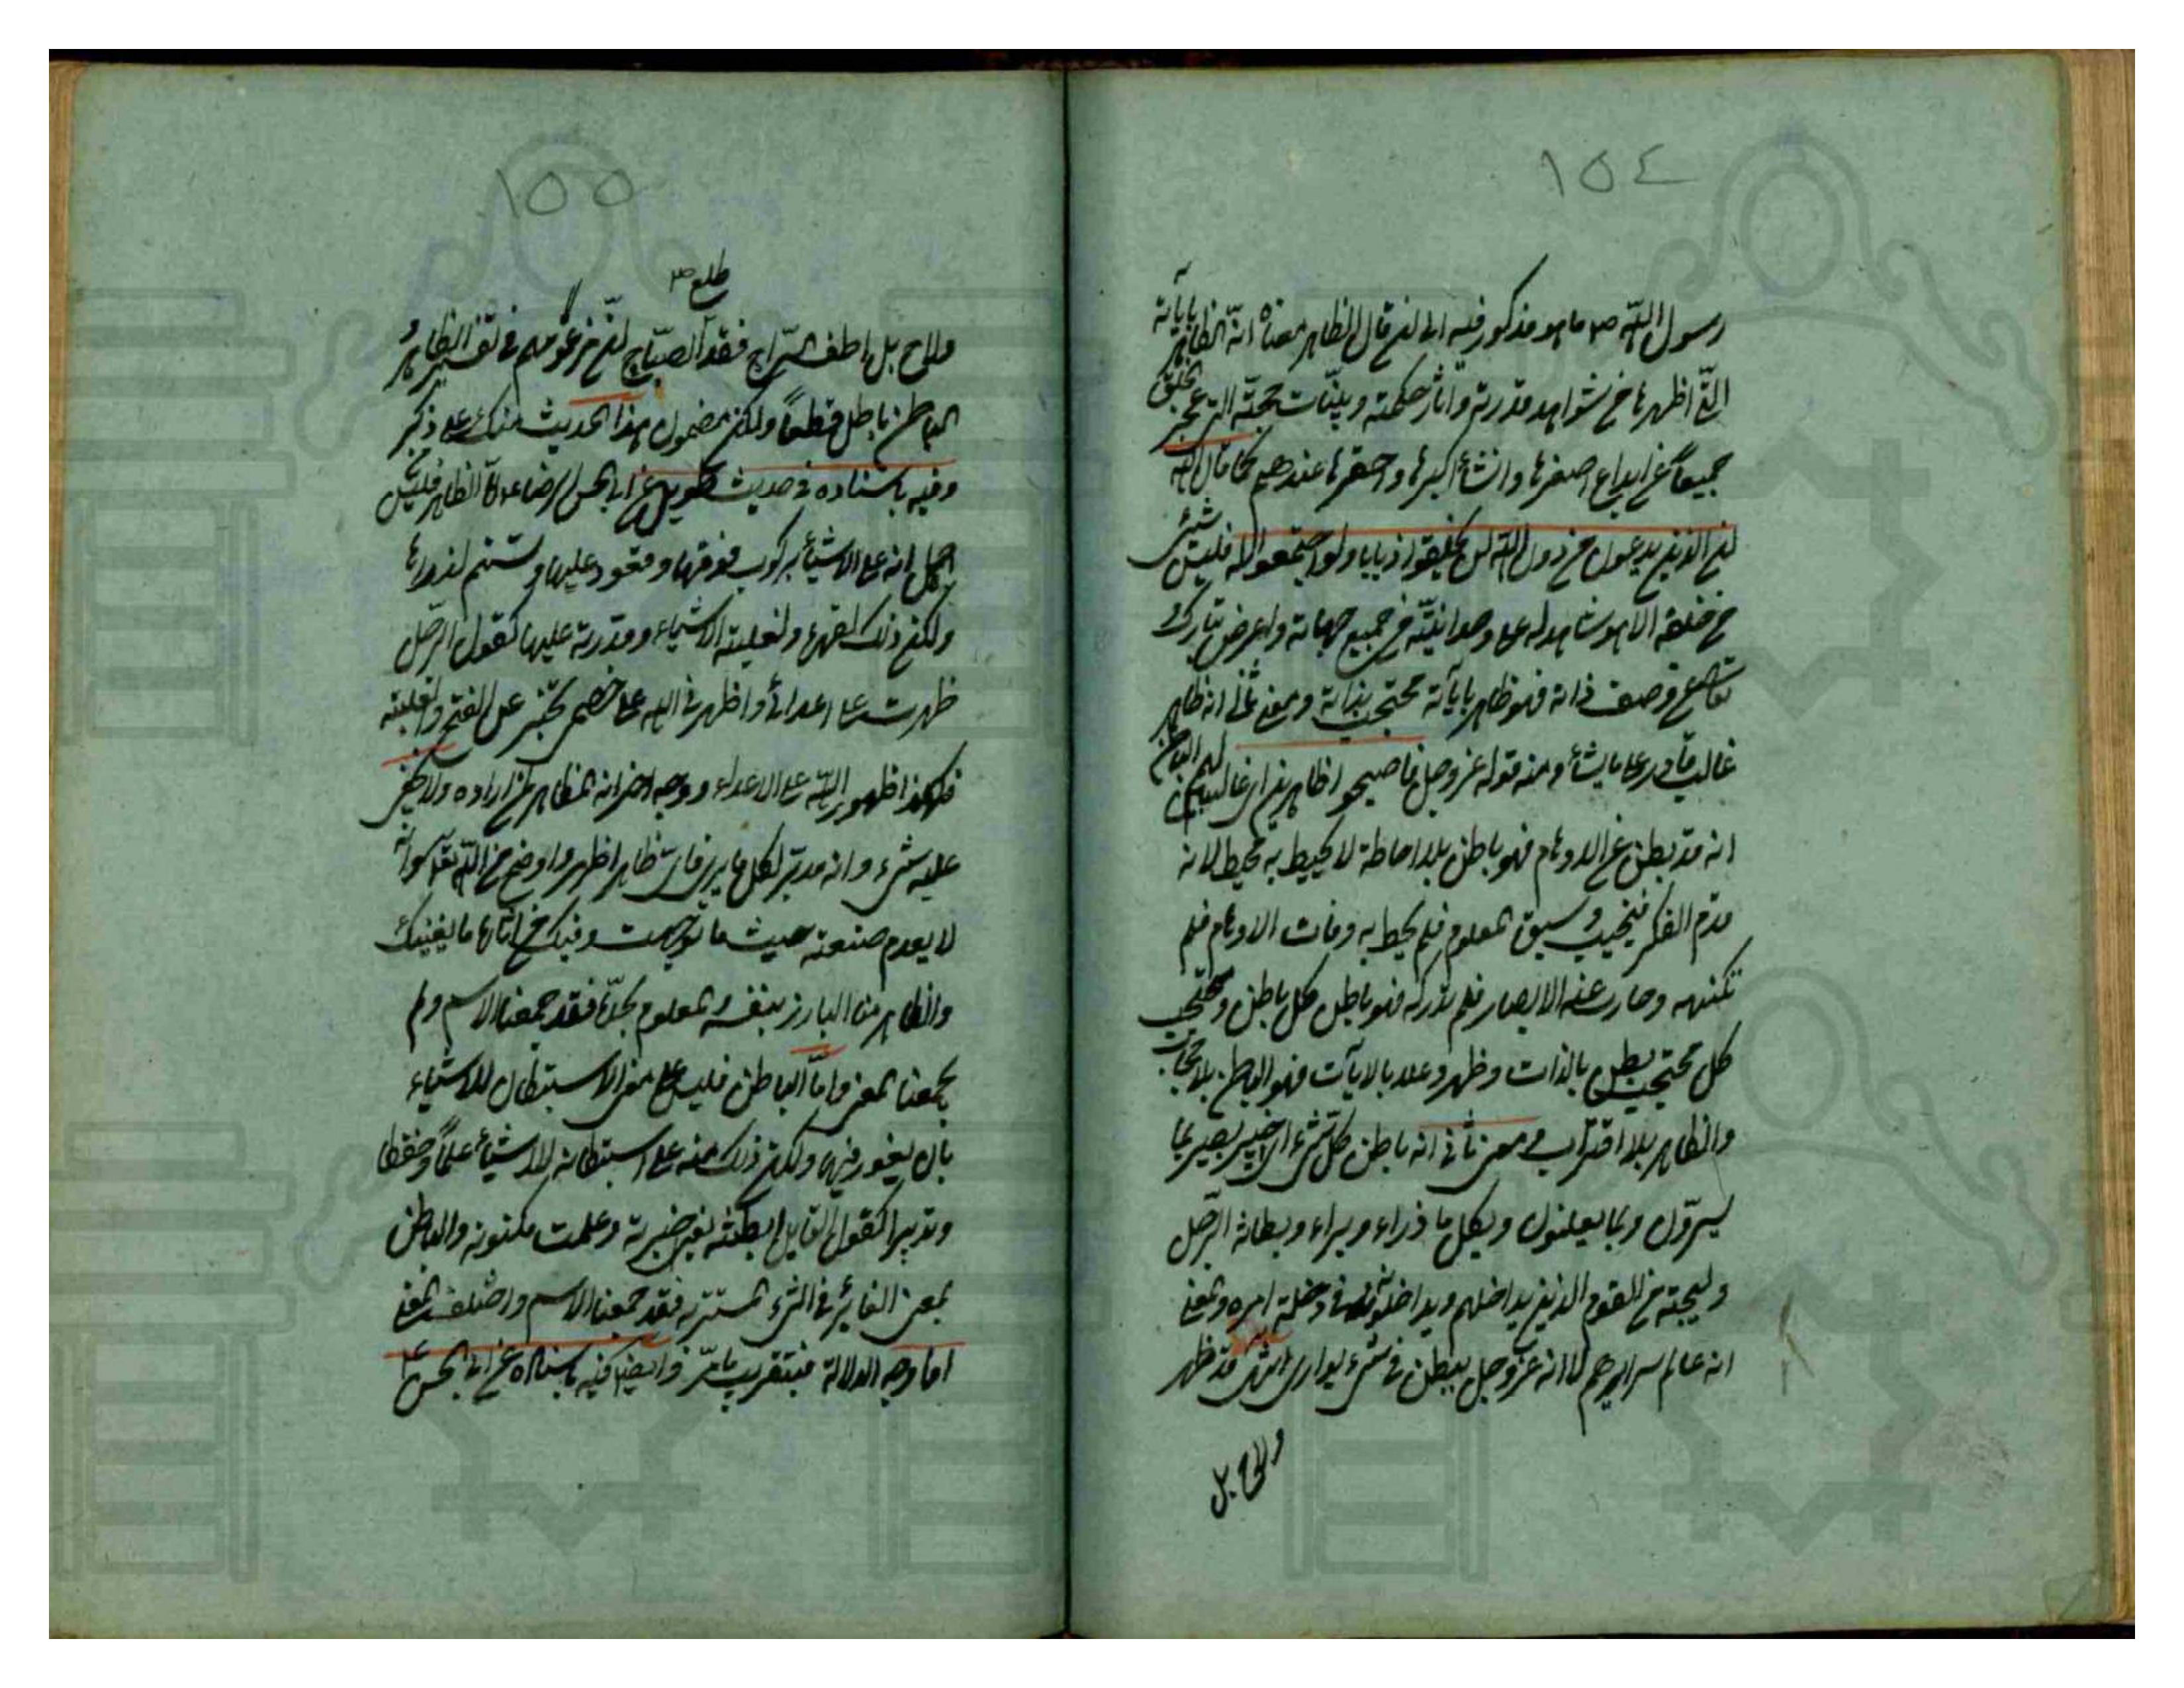 ١٥٤
رسول الله ص ما هو مذكور فيه الى ان قال الظاهر معناه انه الظاهر بآياته
التى اظهرها من شواهد قدرته وآثار حكمته وبينات حجته التى عجز الخلق
جميعا عن ابداع اصغرها وانشاء اكبرها واحقرها عندهم كما قال الله
ان الذين يدعون من دون الله لن يخلقوا ذبابا ولو اجتمعوا له فليس شيئ
من خلقه الا هو شاهد له على وحدانيته من جميع جهاته واعرض تبارك
وتعالى عن وصف ذاته فهو ظاهر بآياته محتجب بذاته ومعنى ثان انه ظاهر
غالب قادر على ما يشاء ومنه قوله عز وجل فاصبحوا ظاهرين اى غالبين لهم الباطن
انه قد بطن عن الاوهام فهو باطن بلا احاطة لا يحيط به محيط لانه
قدم الفكر فخبت وسبق المعلوم فلم يحط به وفات الاوهام فلم
تكتنهه وحارت عنه الابصار فلم تدركه فهو باطن كل باطن ومحتجب
كل محتجب بطن بالذات وظهر وعلا بالآيات فهو الباطن بلا حجاب
والظاهر بلا اقتراب ومعنى ثانى انه باطن كل شىء اى خبير بصير بما
يسرون وبما يعلنون وبكل ما ذراء وبراء وبطانة الرجل
وليجته من القوم الذين يداخلهم ويداخلونه فى دخلة امره والمعنى
انه عالم سرايرهم لا انه عز وجل يبطن فى شىء يوارى انتهى قد ظهر
ولاح بل
١٥٥
ولاح بل اطف السراج فقد طلع الصباح ان من عمومهم فى تفسير الظاهر
الباطن باطل قطعا ولكن مضمون هذا الحديث منك على ذكر
وفيه باسناده فى حديث طويل عن ابى الحسن الرضا ع اما الظاهر فليس
من اجل انه على الاشياء بركوب فوقها وقعود عليها وتسنم لذراها
ولكن ذلك لقهره ولغلبته الاشياء وقدرته عليها كقول الرجل
ظهرت على اعدائى واظهرنى الله على خصمى يخبر عن الفتح والغلبة
فهكذا ظهور الله على الاعداء ووجه آخر انه الظاهر لمن اراده ولا يخفى
عليه شىء وانه مدبر لكل ما يرى فاى ظاهر اظهر واوضح من الله تعالى لانه
لا يعدم صنعته حيث ما توجهت وفيك من آثاره ما يغنيك
والظاهر منا البارز بنفسه والمعلوم بحده فقد جمعنا الاسم ولم
يجمعنا المعنى واما الباطن فليس على معنى الاستبطان للاشياء
بان يغور فيها ولكن ذلك منه على استبطانه للاشياء علما وحفظا
وتدبيرا كقول القايل ابطنته يعنى خبرته وعلمت مكنونه والباطن
بمعنى الغائر فى الشىء المستتر به فقد جمعنا الاسم واختلف المعنى
اما وجه الدلالة فبتقريب ما مر وايضا فيه باسناده عن ابى الحسن ع